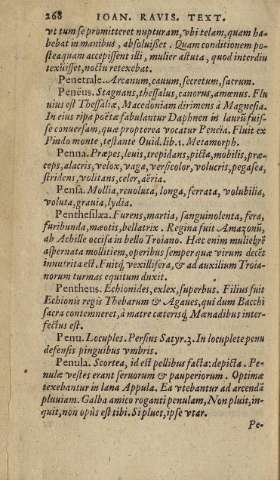 268 IOAN. RAVIS. TEXT.
ut tum se promitteret nupturam, ubi telam, quam ha-
bebat in manibus, absoluisset. Quam conditionem po-
steaquam accepissent illi, mulier astuta, quod interdiu
texuisset, noctu retexebat.
Penetrale. Arcanum, cauum, secretum, sacrum.
Penêus. Stagnans, thessalus, canorus, amœnus. Flu
uius est Thessaliæ, Macedoniam dirimens à Magnesia.
In eius ripa poëtæ fabulantur Daphnen in laurũ fuis-
se conuersam, quæ propterea vocatur Peneia. Fluit ex
Pindo monte, testante Ouid. lib. 1. Metamorph.
Penna. Præpes, leuis, trepidans, picta, mobilis, præ-
ceps, alacris, velox, vaga, versicolor, volucris, pegasea,
stridens, volitans, celer, aëria.
Pensa. Mollia, reuoluta, longa, ferrata, volubilia,
voluta, grauia, lydia.
Penthesilæa. Furens, martia, sanguinolenta, fera,
furibunda, mæotis, bellatrix. Regina fuit Amazonũ,
ab Achille occisa in bello Troiano. Hæc enim muliebrẽ
aspernata mollitiem, operibus semper quæ virum decẽt
innutrita est. Fuitq́; vexillifera, & ad auxilium Troia-
norum turmas equitum duxit.
Pentheus. Echionides, exlex, superbus. Filius fuit
Echionis regis Thebarum & Agaues, qui dum Bacchi
sacra contemneret, à matre caterisq́; Mænadibus inter-
fectus est.
Penu. Locuples. Persius Satyr. 3. In locuplete penu
defensis pinguibus vmbris.
Penula. Scortea, id est pellibus facta: depicta. Pe-
nulæ vestes erant seruorum & pauperiorum. Optimæ
texebantur in lana Appula. Ea vtebantur ad arcendã
pluuiam. Galba amico roganti penulam, Non pluit, in-
quit, non opùs est tibi. Si pluet, ipse vtar.
Pe-